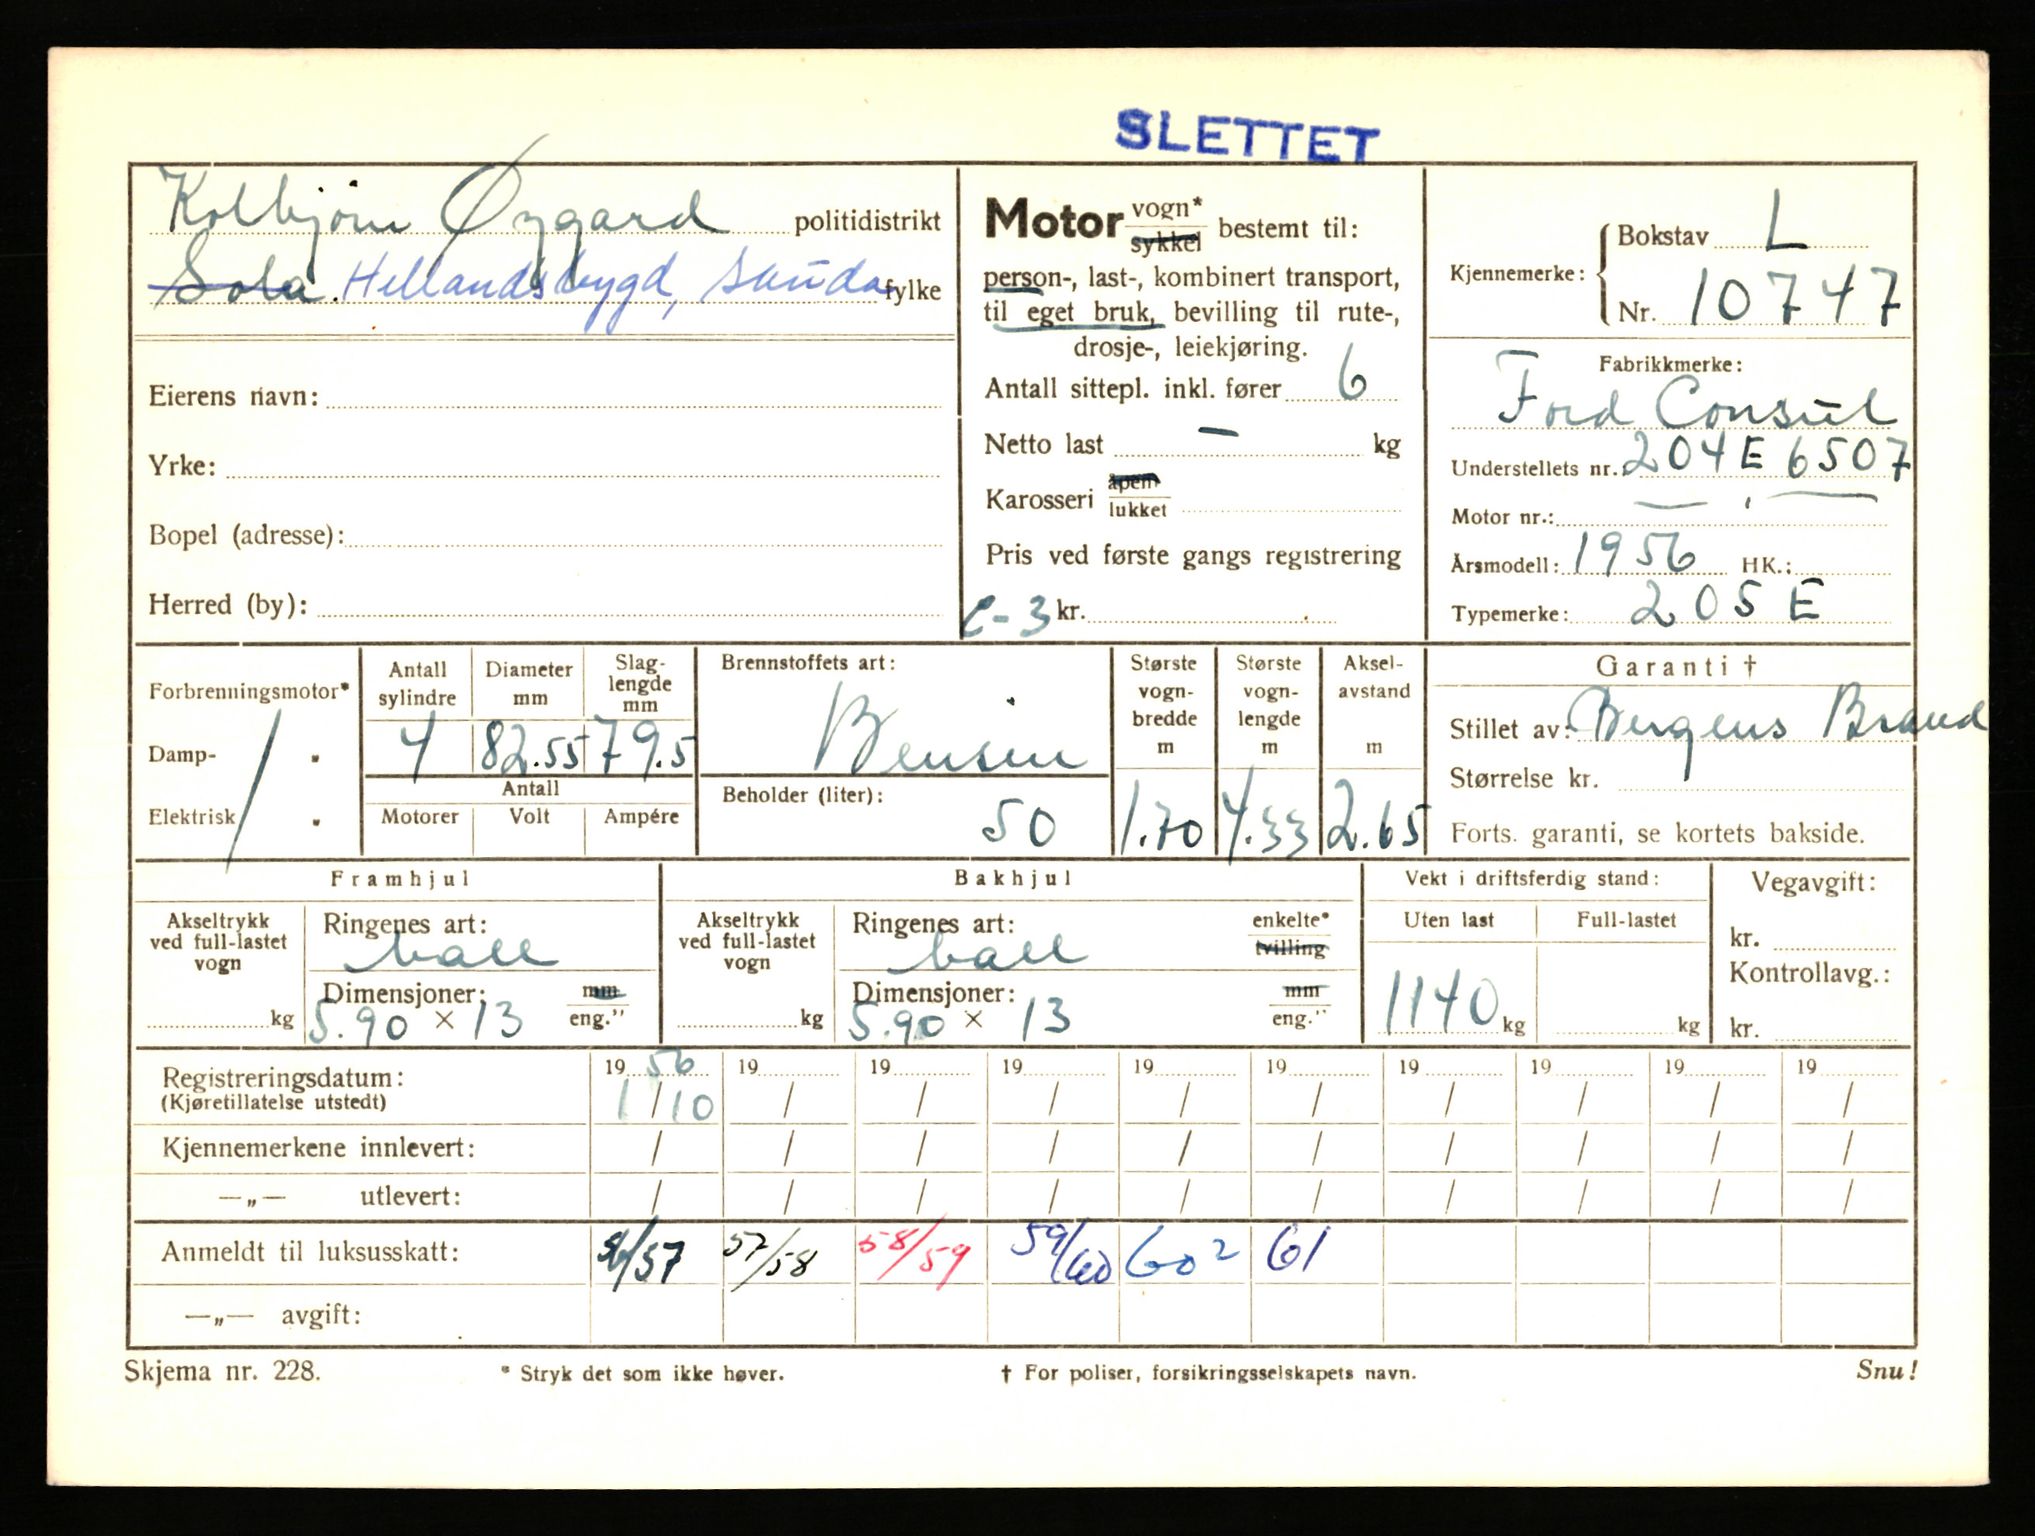 SLETTET
Kolbjørn Øygard politidistrikt
Sola. Hellandsbygd, Sauda fylke
Eierens navn:
Yrke:
Bopel (adresse):
Herred (by):
Motor vogn* sykkel bestemt til:
person-, last-, kombinert transport,
til eget bruk, bevilling til rute-,
drosje-, leiekjøring.
Antall sittepl. inkl. fører 6
Netto last — kg
Karosseri åpent lukket
Pris ved første gangs registrering
C-3 kr.
Kjennemerke: Bokstav L
Nr. 10747
Fabrikkmerke:
Ford Consul
Understellets nr. 204E 6507
Motor nr.: — " —
Årsmodell: 1956 HK.:
Typemerke: 205E
Forbrenningsmotor*
Damp- "
Elektrisk "
Antall sylindre
4
Diameter mm
82.55
Slag-lengde mm
79.5
Antall
Motorer Volt Ampére
Brennstoffets art:
Bensin
Beholder (liter):
50
Største vogn-bredde m
1.70
Største vogn-lengde m
4.33
Aksel-avstand m
2.65
Garanti †
Stillet av: Bergens Brand
Størrelse kr.
Forts. garanti, se kortets bakside.
Framhjul
Akseltrykk ved full-lastet vogn
kg
Ringenes art:
ball
Dimensjoner: mm
5.90 × 13 eng."
Bakhjul
Akseltrykk ved full-lastet vogn
kg
Ringenes art: enkelte*
ball tvilling
Dimensjoner: mm
5.90 × 13 eng."
Vekt i driftsferdig stand:
Uten last Full-lastet
1140 kg kg
Vegavgift:
kr.
Kontrollavg.:
kr.
Registreringsdatum: 1956 19 19 19 19 19 19 19 19 19
(Kjøretillatelse utstedt) 1/10 / / / / / / / / /
Kjennemerkene innlevert: / / / / / / / / / /
—„— utlevert: / / / / / / / / / /
Anmeldt til luksusskatt: 56/57 57/58 58/59 59/60 60² 61
—„— avgift:
Skjema nr. 228. * Stryk det som ikke høver. † For poliser, forsikringsselskapets navn. Snu!